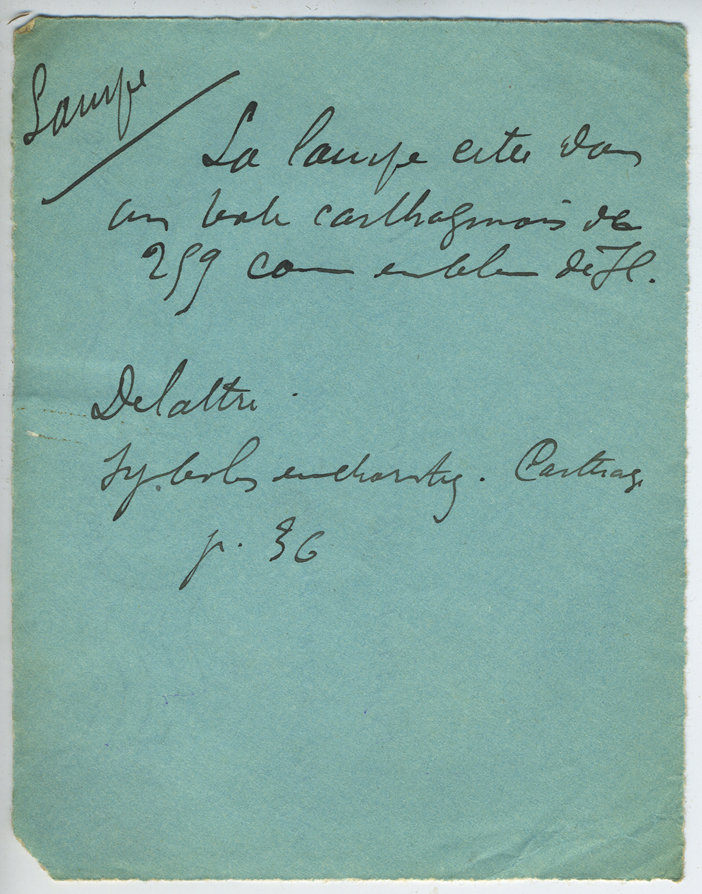 Lampe
La lampe citee dans
un texte carthaginois de
259 com emblem de J C.
Delattre.
Symboles eucharistiq. Carthage
p. 36